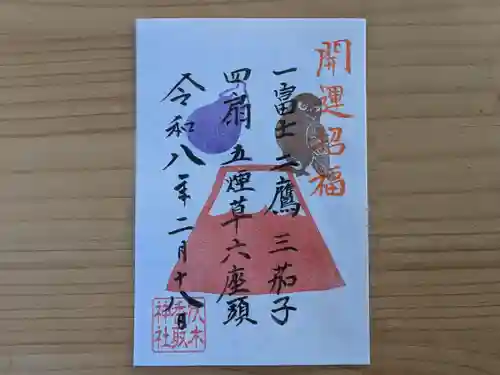 開運招福
一富士二鷹三茄子
四扇五煙草六座頭
令和八年二月十八日
香取神社